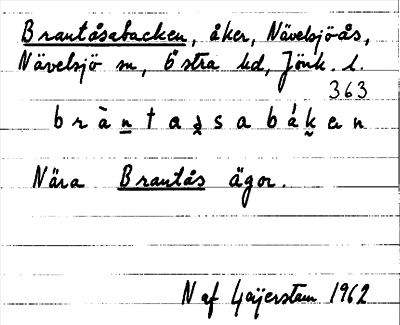 Brantåsabacken, åker, Nävelsjöås,
Nävelsjö sn, Östra hd, Jönk. l.
363
b r à n t a s s a b á k e n
Nära Brantås ägor.
N af Geijerstam 1962